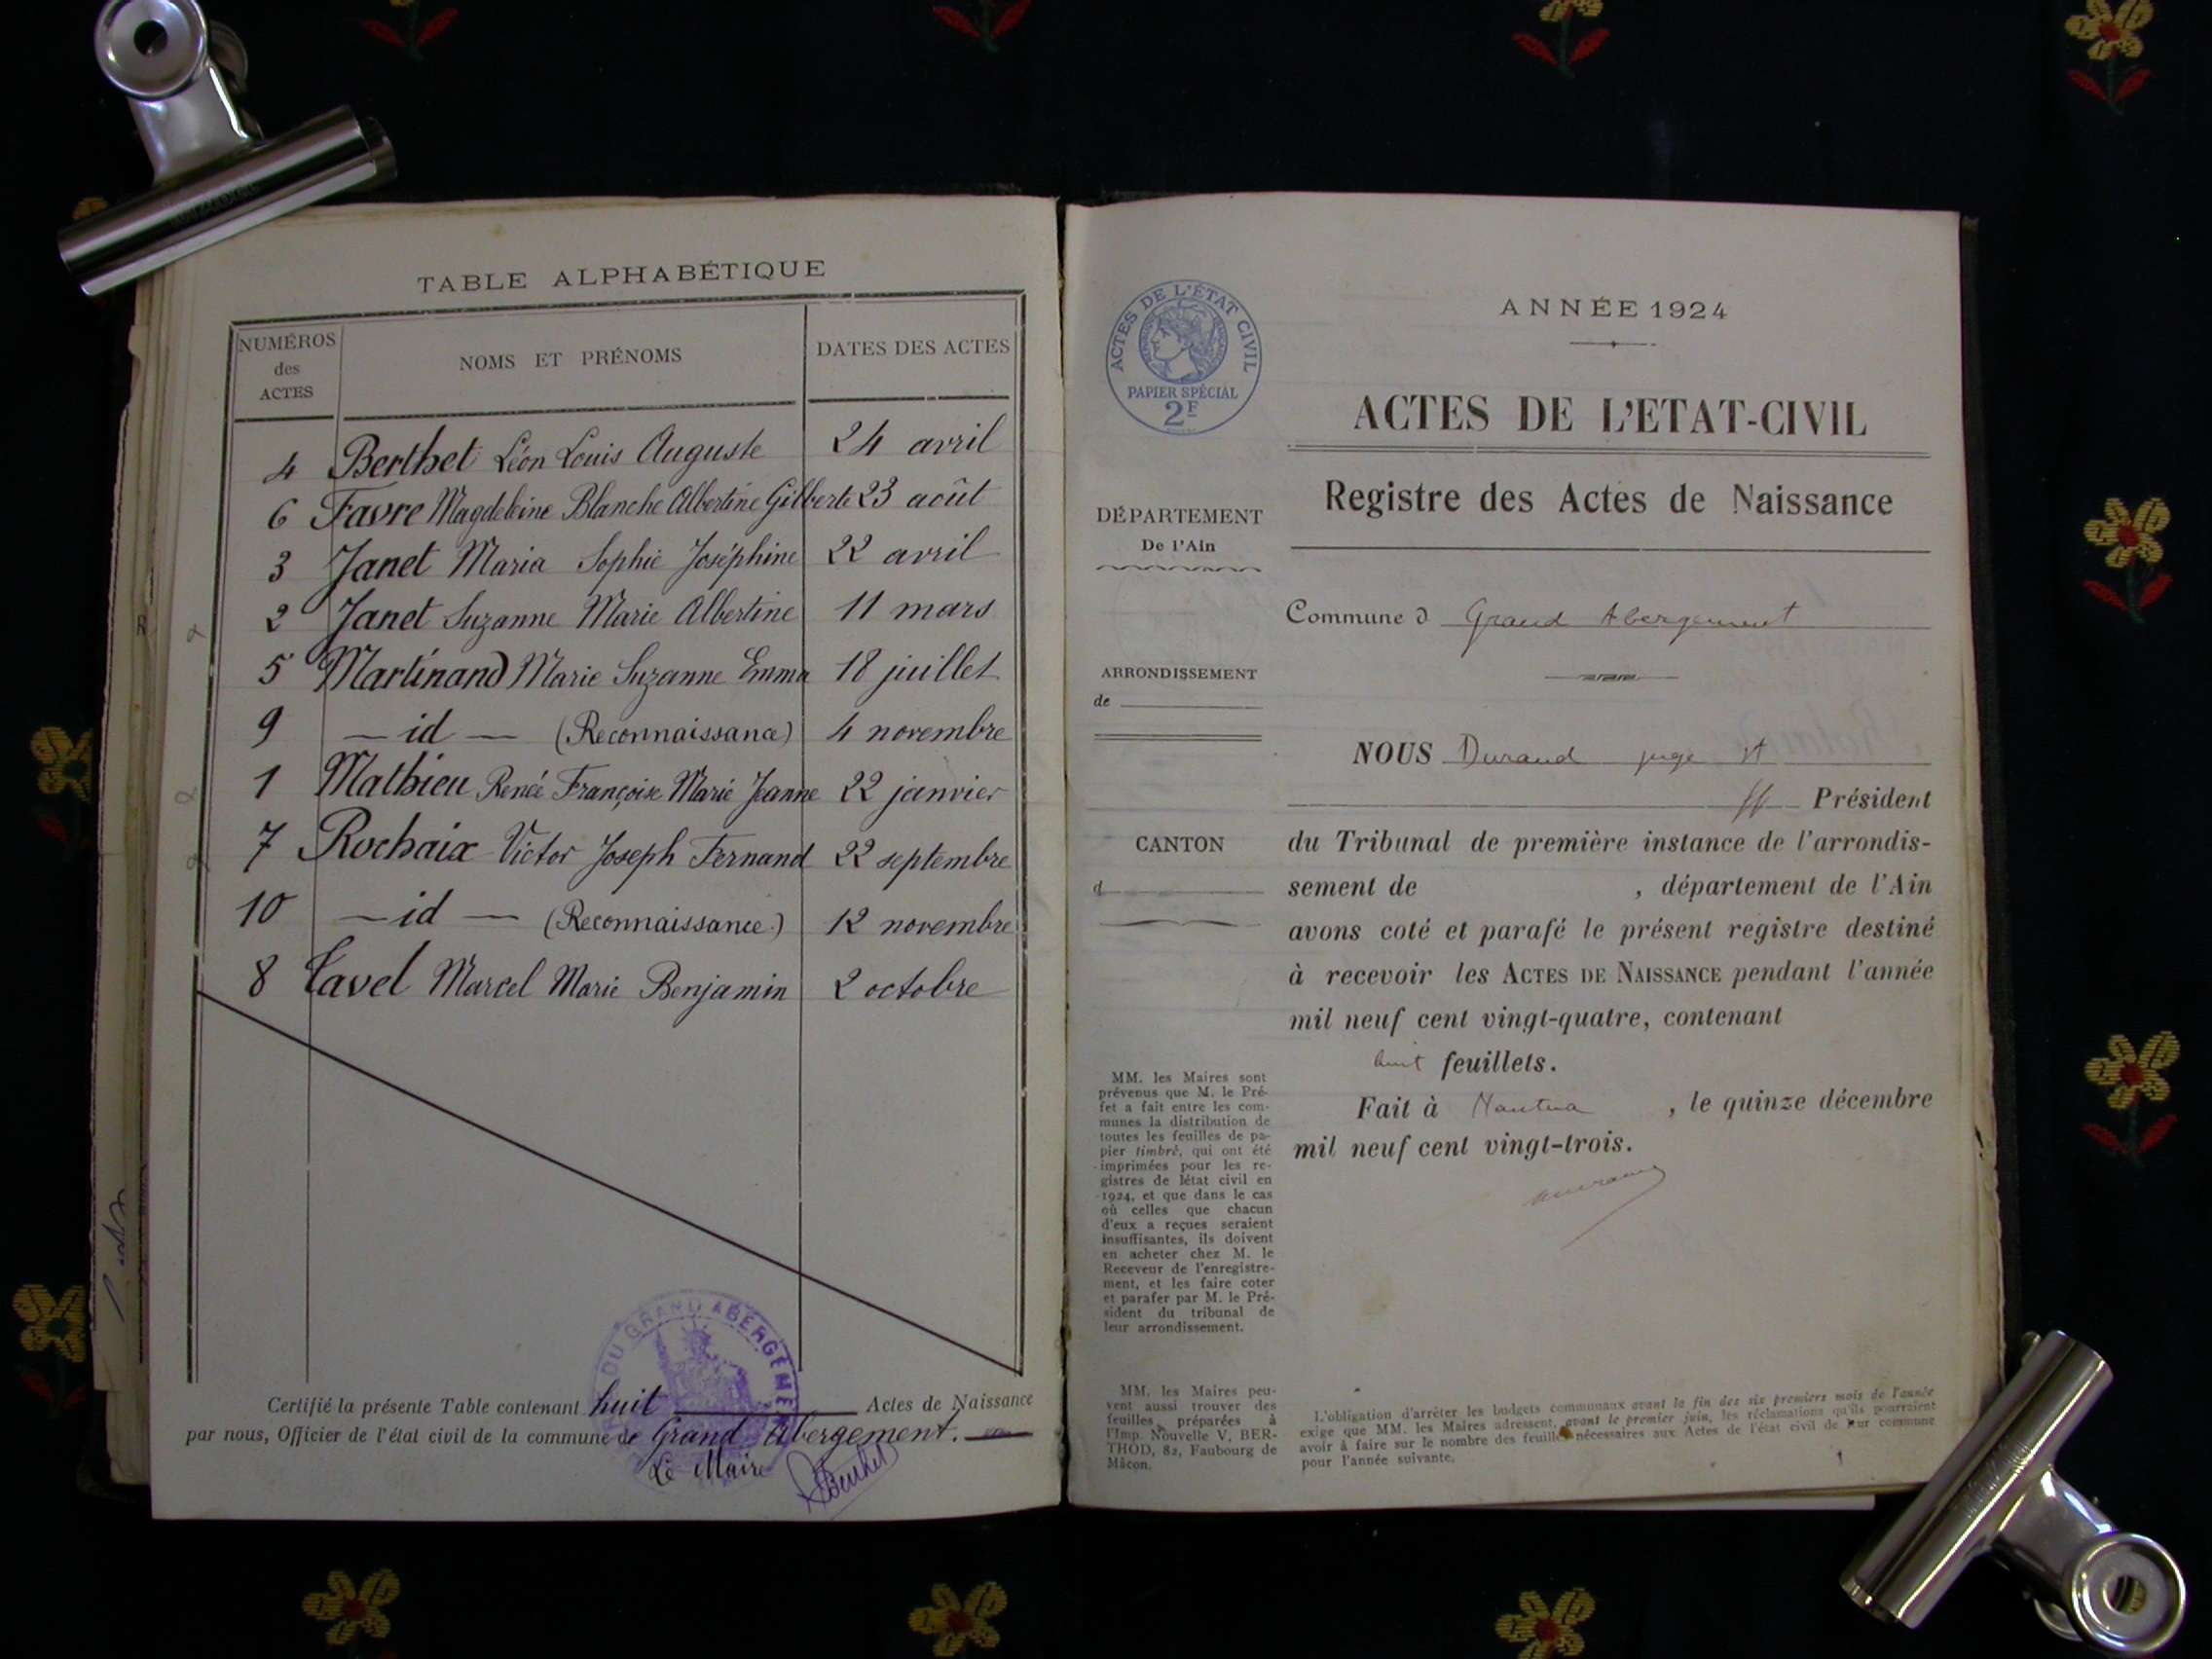 TABLE ALPHABÉTIQUE
NUMÉROS des ACTES
NOMS ET PRÉNOMS
DATES DES ACTES
4 Berthet Léon Louis Auguste 24 avril
6 Favre Magdeleine Blanche Albertine Gilberte 23 août
3 Janet Maria Sophie Joséphine 22 avril
2 Janet Suzanne Marie Albertine 11 mars
5 Martinand Marie Suzanne Emma 18 juillet
9 — id — (Reconnaissance) 4 novembre
1 Mathieu Renée Françoise Marie Jeanne 22 janvier
7 Rochaix Victor Joseph Fernand 22 septembre
10 — id — (Reconnaissance) 12 novembre
8 Tavel Marcel Marie Benjamin 2 octobre
DU GRAND ABERGEME
Certifié la présente Table contenant huit Actes de Naissance
par nous, Officier de l'état civil de la commune de Grand Abergement.
Le Maire
ACTES DE L'ÉTAT CIVIL
PAPIER SPÉCIAL
2F
ANNÉE 1924
ACTES DE L'ETAT-CIVIL
Registre des Actes de Naissance
DÉPARTEMENT
De l'Ain
Commune d Grand Abergement
ARRONDISSEMENT
de
NOUS Durand juge st
ff Président
CANTON
d
du Tribunal de première instance de l'arrondis-
sement de , département de l'Ain
avons coté et parafé le présent registre destiné
à recevoir les ACTES DE NAISSANCE pendant l'année
mil neuf cent vingt-quatre, contenant
huit feuillets.
Fait à Nantua , le quinze décembre
mil neuf cent vingt-trois.
MM. les Maires sont
prévenus que M. le Pré-
fet a fait entre les com-
munes la distribution de
toutes les feuilles de pa-
pier timbré, qui ont été
imprimées pour les re-
gistres de létat civil en
1924, et que dans le cas
où celles que chacun
d'eux a reçues seraient
insuffisantes, ils doivent
en acheter chez M. le
Receveur de l'enregistre-
ment, et les faire coter
et parafer par M. le Pré-
sident du tribunal de
leur arrondissement.
MM. les Maires peu-
vent aussi trouver des
feuilles préparées à
l'Imp. Nouvelle V. BER-
THOD, 82, Faubourg de
Mâcon.
L'obligation d'arrêter les budgets communaux avant la fin des six premiers mois de l'année
exige que MM. les Maires adressent, avant le premier juin, les réclamations qu'ils pourraient
avoir à faire sur le nombre des feuilles nécessaires aux Actes de l'état civil de leur commune
pour l'année suivante.
1